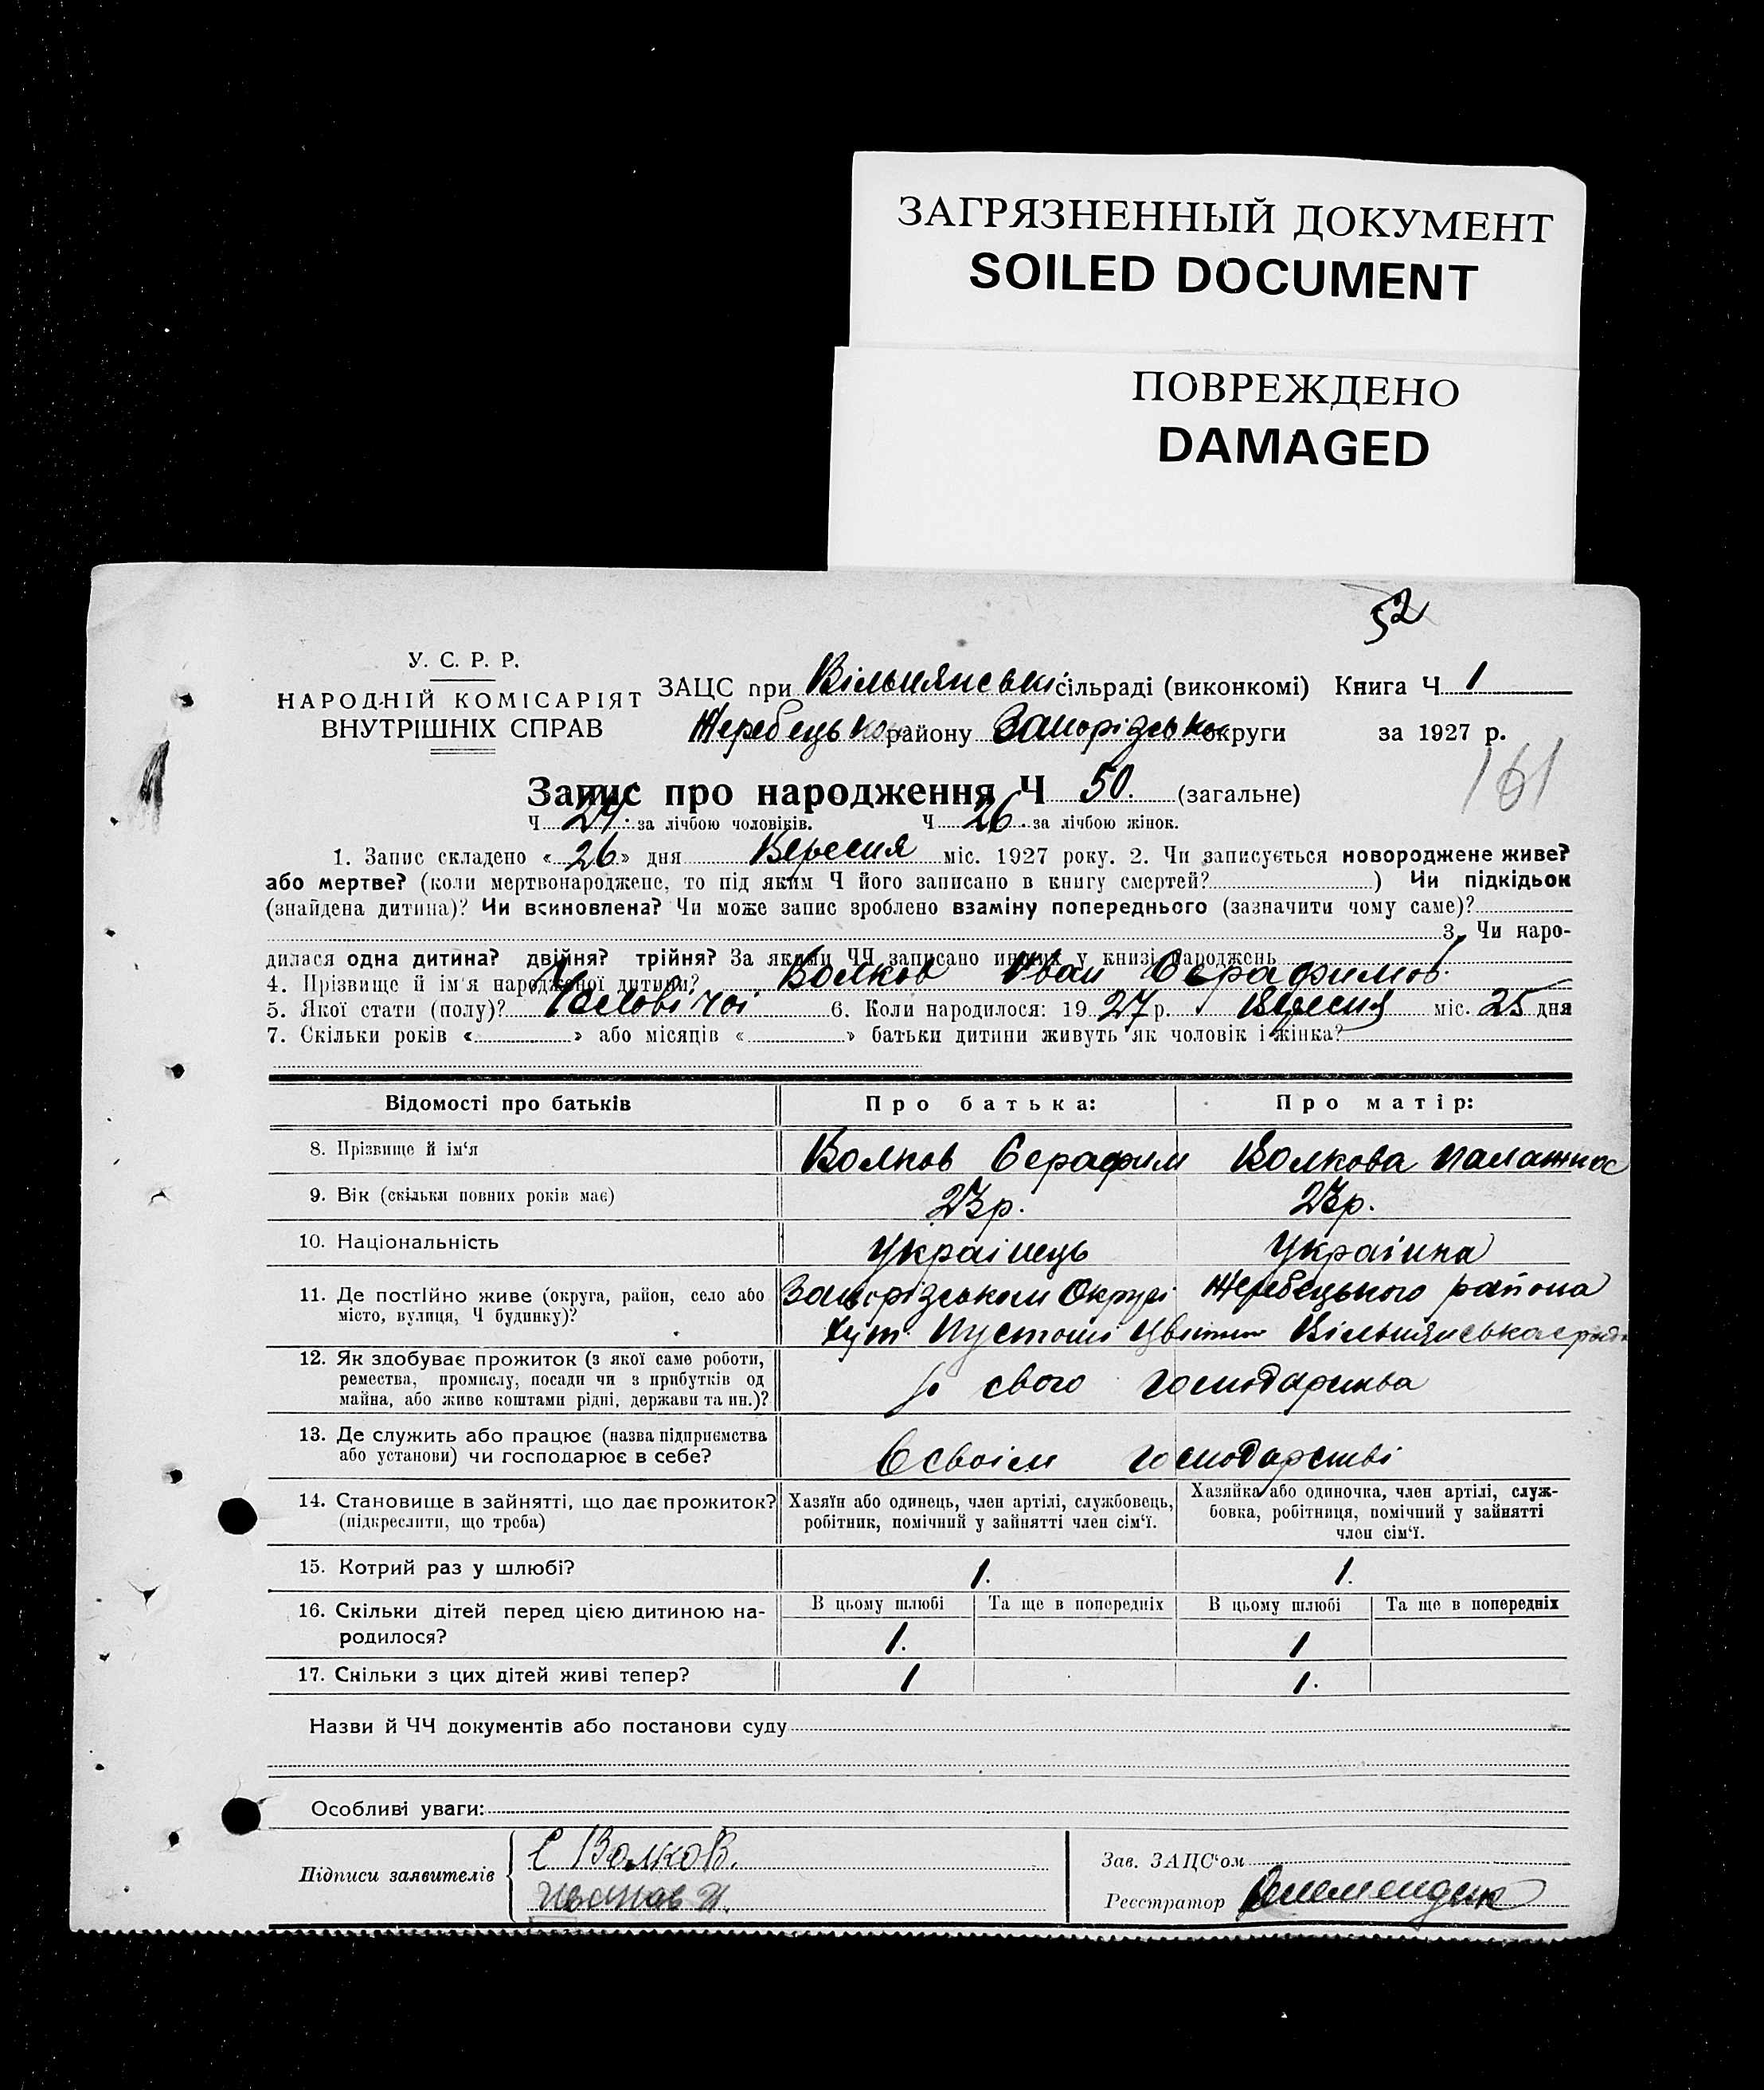 ЗАГРЯЗНЕННЫЙ ДОКУМЕНТ
SOILED DOCUMENT
ПОВРЕЖДЕНО
DAMAGED
52
У. С. Р. Р.
НАРОДНІЙ КОМІСАРІЯТ
ВНУТРІШНІХ СПРАВ
ЗАЦС при Вільнянські сільраді (виконкомі) Книга Ч 1
Жеребецько району Запорізько округи за 1927 р.
161
Запис про народження Ч 50. (загальне)
Ч 24. за лічбою чоловіків. Ч 26. за лічбою жінок.
1. Запис складено «26» дня Вересня міс. 1927 року. 2. Чи записується новороджене живе?
або мертве? (коли мертвонароджене, то під яким Ч його записано в книгу смертей? ) Чи підкідьок
(знайдена дитина)? Чи всиновлена? Чи може запис зроблено взаміну попереднього (зазначити чому саме)?
3. Чи наро-
дилася одна дитина? двійня? трійня? За якими ЧЧ записано инших у книзі народжень
4. Прізвище й ім'я народженої дитини? Волков Іван Серафимов.
5. Якої стати (полу)? Чоловічої 6. Коли народилося: 1927 р. Вересня міс. 25 дня
7. Скільки років « » або місяців « » батьки дитини живуть як чоловік і жінка?
Відомості про батьків Про батька: Про матір:
8. Прізвище й ім‘я Волков Серафим Волкова
9. Вік (скільки повних років має) 23р. 23р.
10. Національність Українець Українка
11. Де постійно живе (округа, район, село або місто, вулиця, Ч будинку)? Запорізьком Окрузі Жеребецького района
хут. Вільнянська
12. Як здобуває прожиток (з якої саме роботи, ремества, промислу, посади чи з прибутків од майна, або живе коштами рідні, держави та ин.)? свого господарства
13. Де служить або працює (назва підприємства або установи) чи господарює в себе? В своїм господарстві
14. Становище в зайнятті, що дає прожиток? (підкреслити, що треба) Хазяїн або одинець, член артілі, службовець, робітник, помічний у зайнятті член сім‘ї. Хазяйка або одиночка, член артілі, служ-
бовка, робітниця, помічний у зайнятті член сім‘ї.
15. Котрий раз у шлюбі? 1. 1.
16. Скільки дітей перед цією дитиною на-
родилося? В цьому шлюбі Та ще в попередніх В цьому шлюбі Та ще в попередніх
1. 1
17. Скільки з цих дітей живі тепер? 1 1.
Назви й ЧЧ документів або постанови суду
Особливі уваги:
Підписи заявителів С Волков.
Іванов И.
Зав. ЗАЦС‘ом
Реєстратор